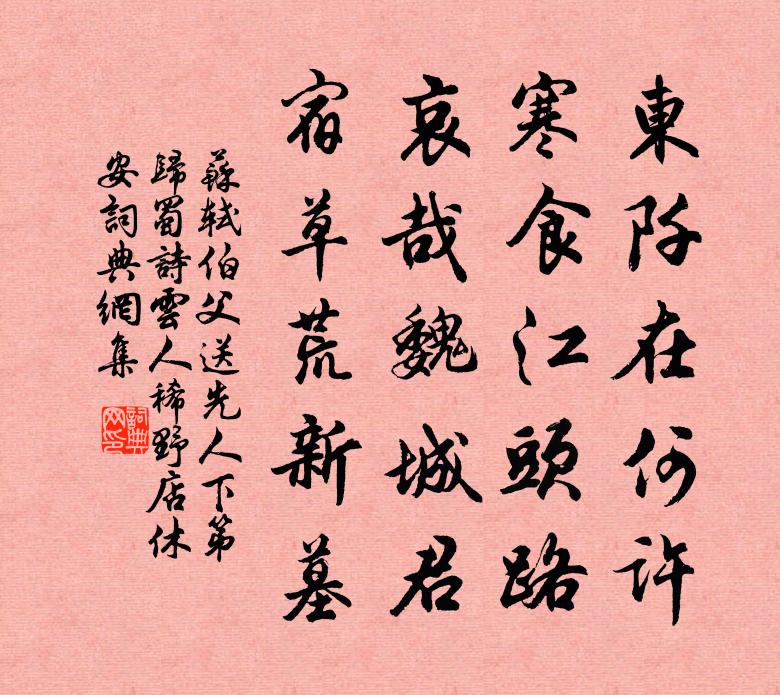 東阡在何許
寒食江頭路
哀哉魏城君
宿草荒新墓
蘇軾伯父送先人下第
歸蜀詩雲人稀野店休
安詞典網集
詞典
网印